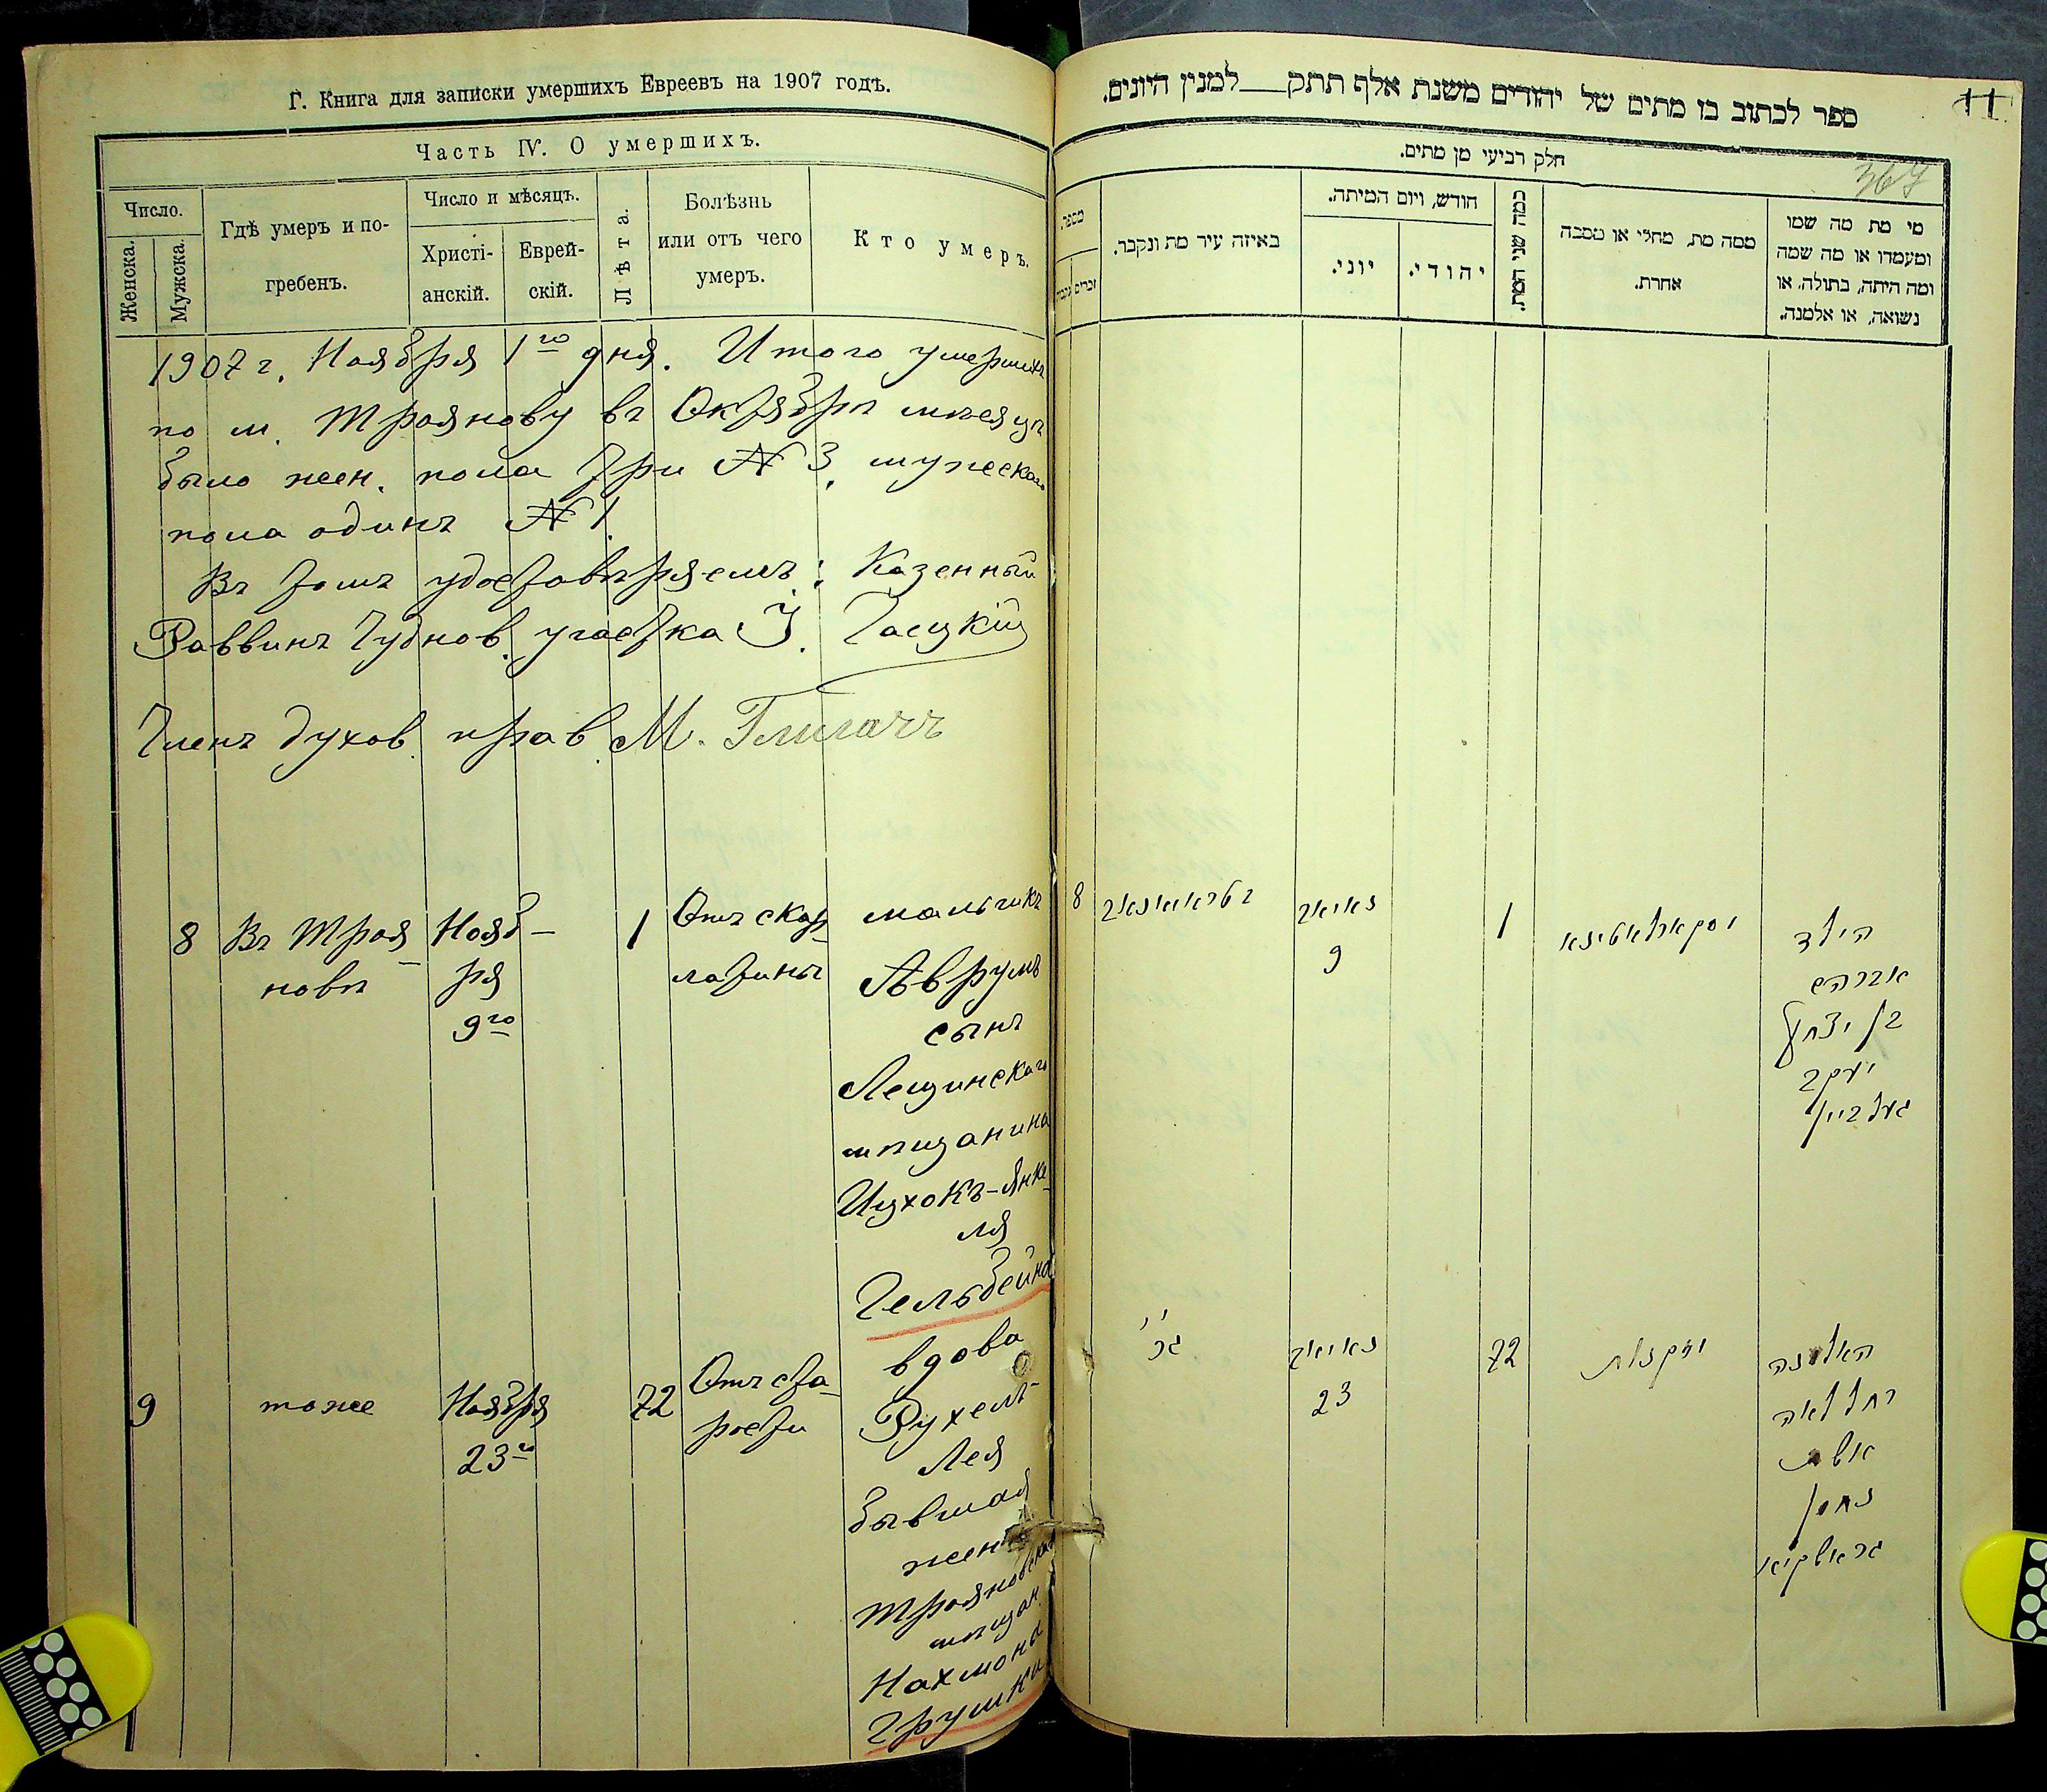 Г. Книга для записки умершихъ Евреевъ на 1907 годъ.
Часть IV. О умершихъ.
Число.
Женска.
Мужска.
Гдѣ умеръ и по-
гребенъ.
Число и мѣсяцъ.
Христі-
анскій.
Еврей-
скій.
Лѣта.
Болѣзнь
или отъ чего
умеръ.
Кто умеръ.
1907 г. Ноября 1го дня. Итого умершихъ
по м. Троянову въ Октябрѣ мѣсяцѣ
было жен. пола три № 3, мужескаго
пола одинъ № 1.
Въ томъ удостовѣряемъ: Казенный
Раввинъ Чуднов. участка
Членъ духов. прав. М.
8
Въ Троя-
новѣ
Нояб-
ря
9го
1
Отъ скар-
латины
мальчикъ
Аврумъ
сынъ
Лещинскаго
мѣщанина
Ицхокъ-Янке-
ля
Гельбейна
9
тоже
Ноября
23го
72
Отъ ста-
рости
вдова
Рухель-
Лея
бывшая
жена
Трояновскаго
мѣщан.
Нахмона
Грушки
ספר לכתוב בו מתים של יהודים משנת אלף תתק למנין היונים.
11
367
חלק רביעי מן מתים.
מספר.
זכרים
נקבות
באיזה עיר מת ונקבר.
חודש, ויום המיתה.
יוני.
יהודי.
כמה שני המת.
ממה מת, מחלי או מסבה
אחרת.
מי מת מה שמו
ומעמדו או מה שמה
ומה היתה, בתולה, או
נשואה, או אלמנה.
8
בטראיאנאוו
נאיאב
9
1
וסקארלאטינא
הילד
אברהם
בן יצחק
יעקב
געלביין
גם
נאיאב
23
72
מזקנות
האלמנה
רחל לאה
אשת
נחמן